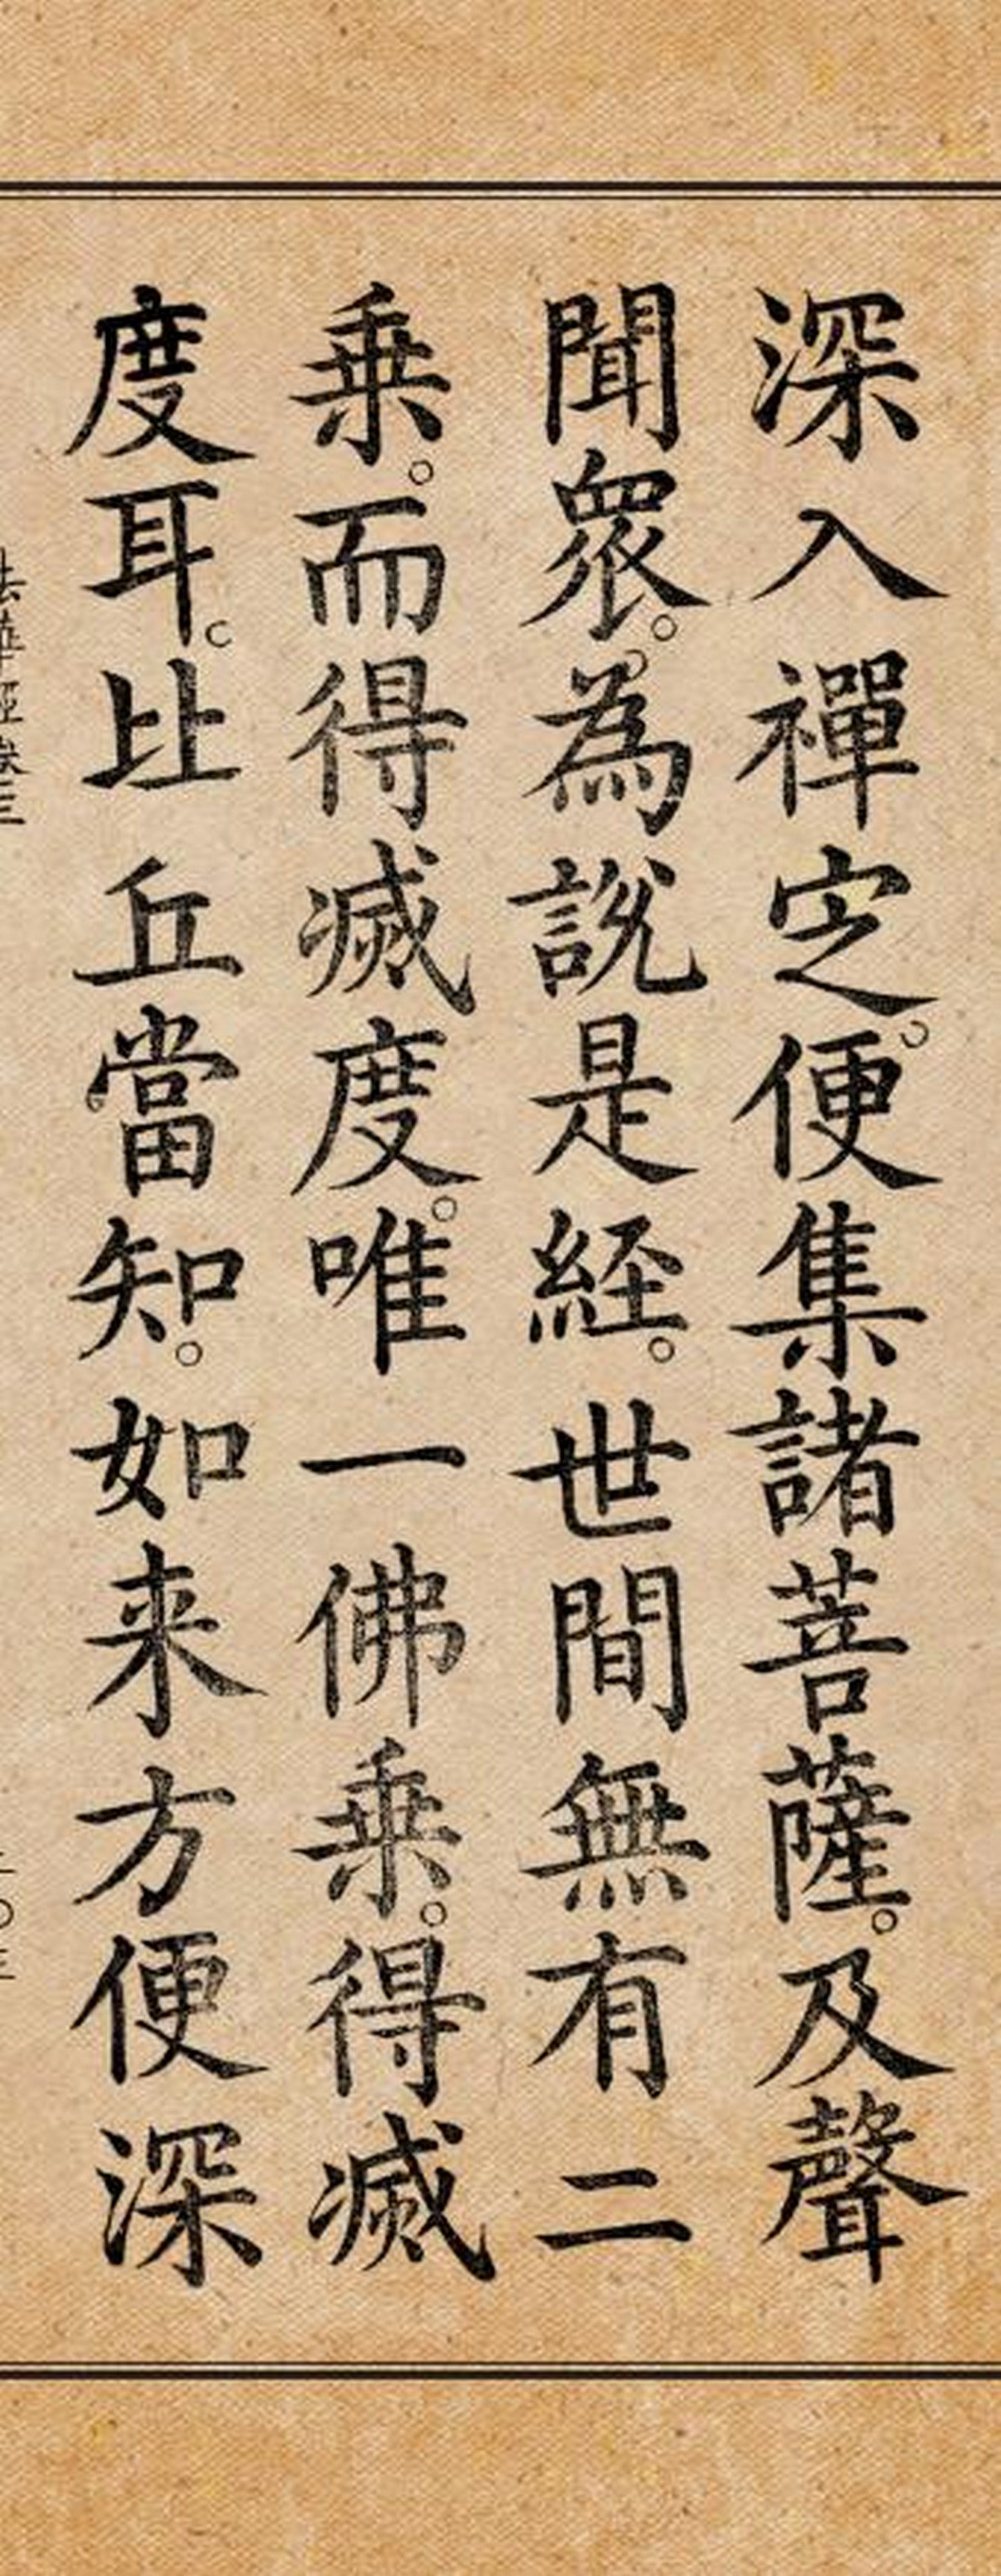 深入禪定。便集諸菩薩。及聲
聞眾。為說是経。世間無有二
乗。而得滅度。唯一佛乗。得滅
度耳。比丘當知。如来方便深
法華經卷三